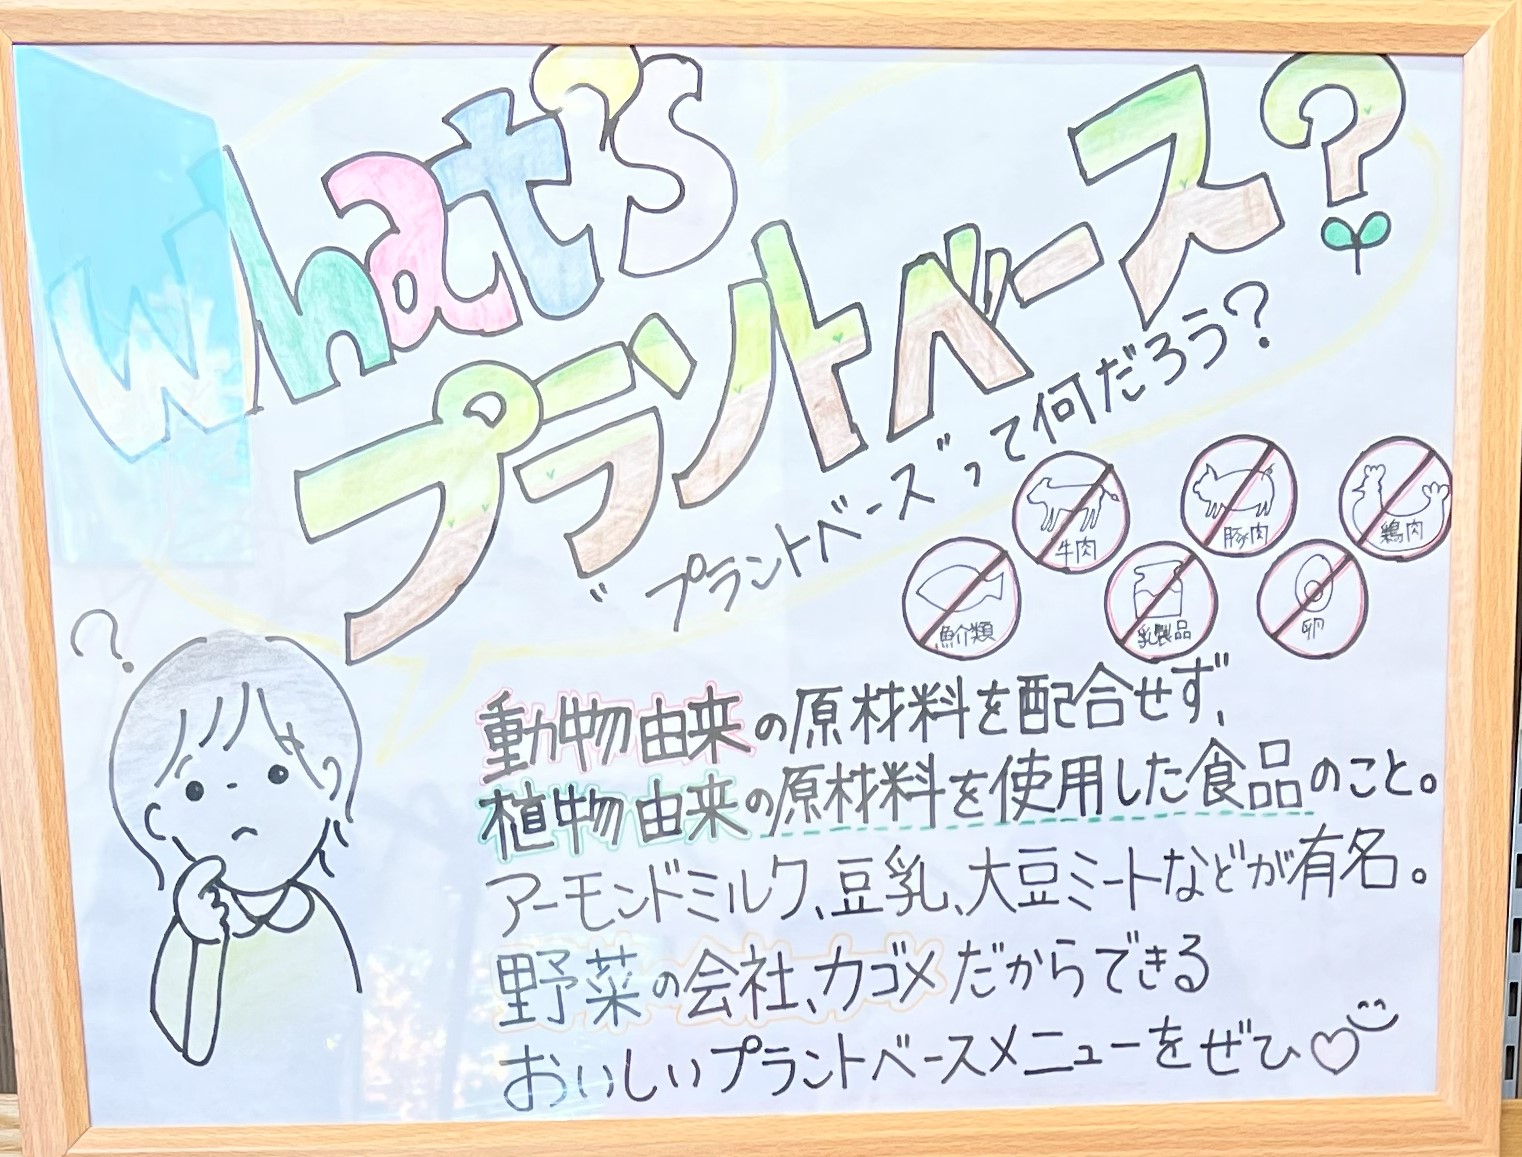 What's
プラントベース?
"プラントベース"って何だろう?
牛肉
豚肉
鶏肉
魚介類
乳製品
卵
?
動物由来の原材料を配合せず、
植物由来の原材料を使用した食品のこと。
アーモンドミルク、豆乳、大豆ミートなどが有名。
野菜の会社、カゴメだからできる
おいしいプラントベースメニューをぜひ♡